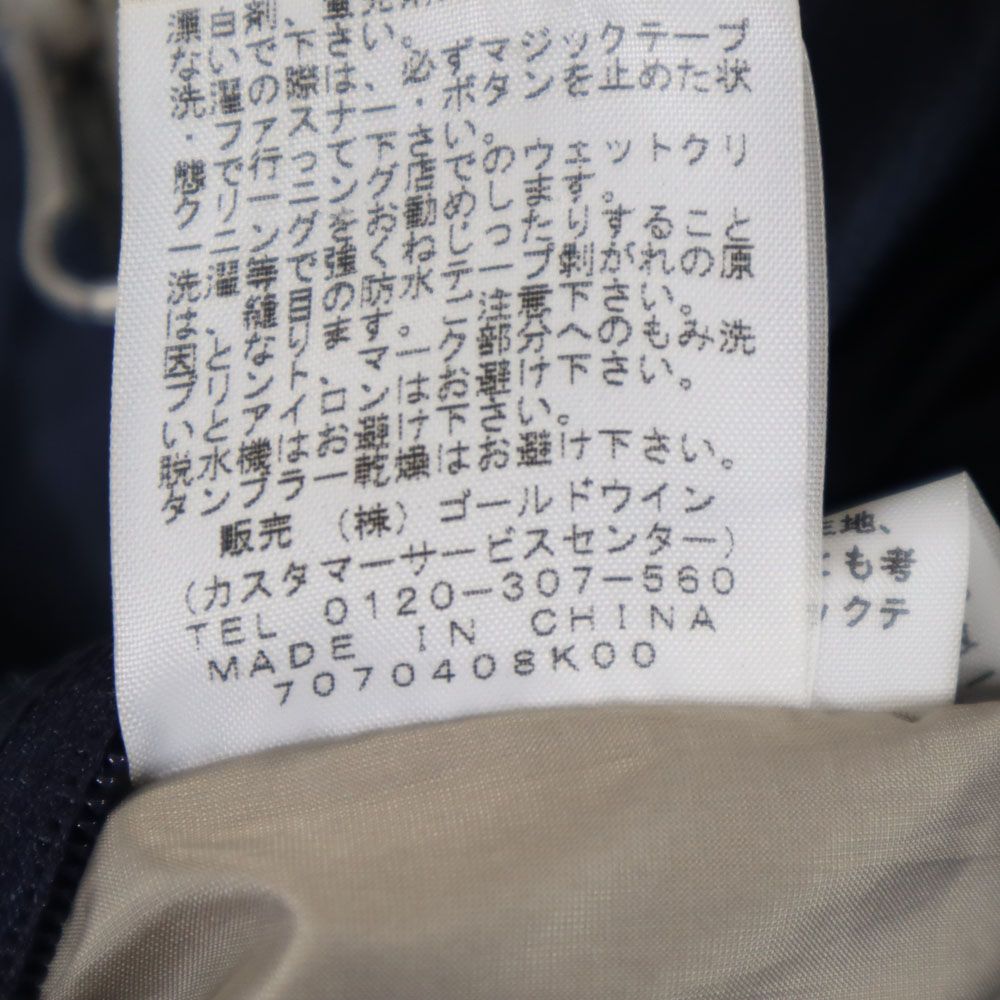 漂白剤、
ないで下さい。
洗濯の際は、必ずマジックテープ
・ファスナー・ボタンを止めた状
態で行って下さい。
クリーニング店でのウェットクリ
ーニングをお勧めします。
洗濯等で強くねじったりすること
は、縫目の防水テープが剥がれる原
因となります。ご注意下さい。
プリント、マーク部分へのもみ洗
いとアイロンはお避け下さい。
脱水機はお避け下さい。
タンブラー乾燥はお避け下さい。
販売 (株) ゴールドウイン
(カスタマーサービスセンター)
TEL 0120-307-560
MADE IN CHINA
7070408K00
生地、
も考
ックテ